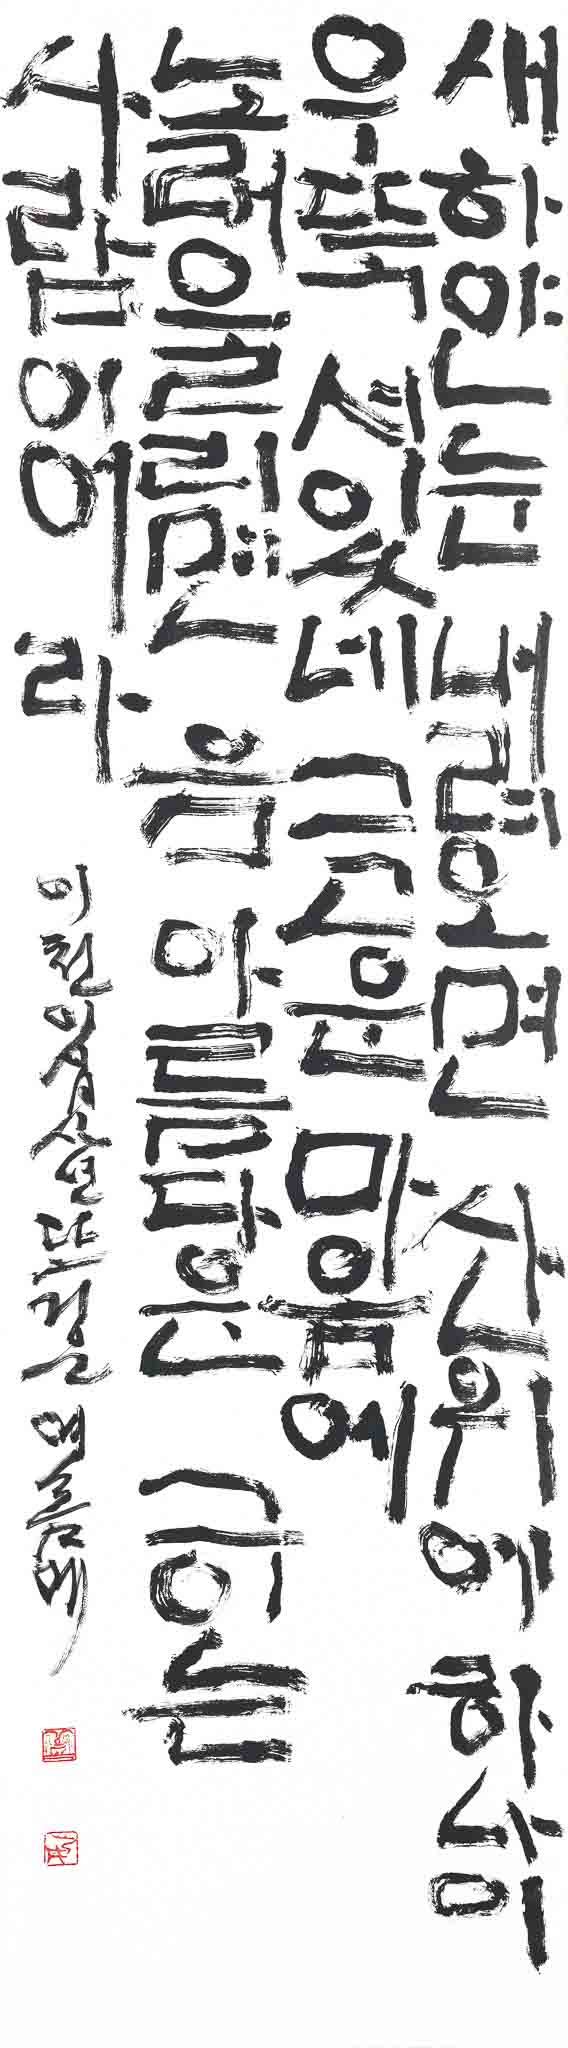 새하얀 눈 내려오면 산위에 한아이
우뚝 서있네 그고운 마음에
노래 울리면 음 아름다운 그이는
사람이어라
이천이십사년 뜨건 여름에